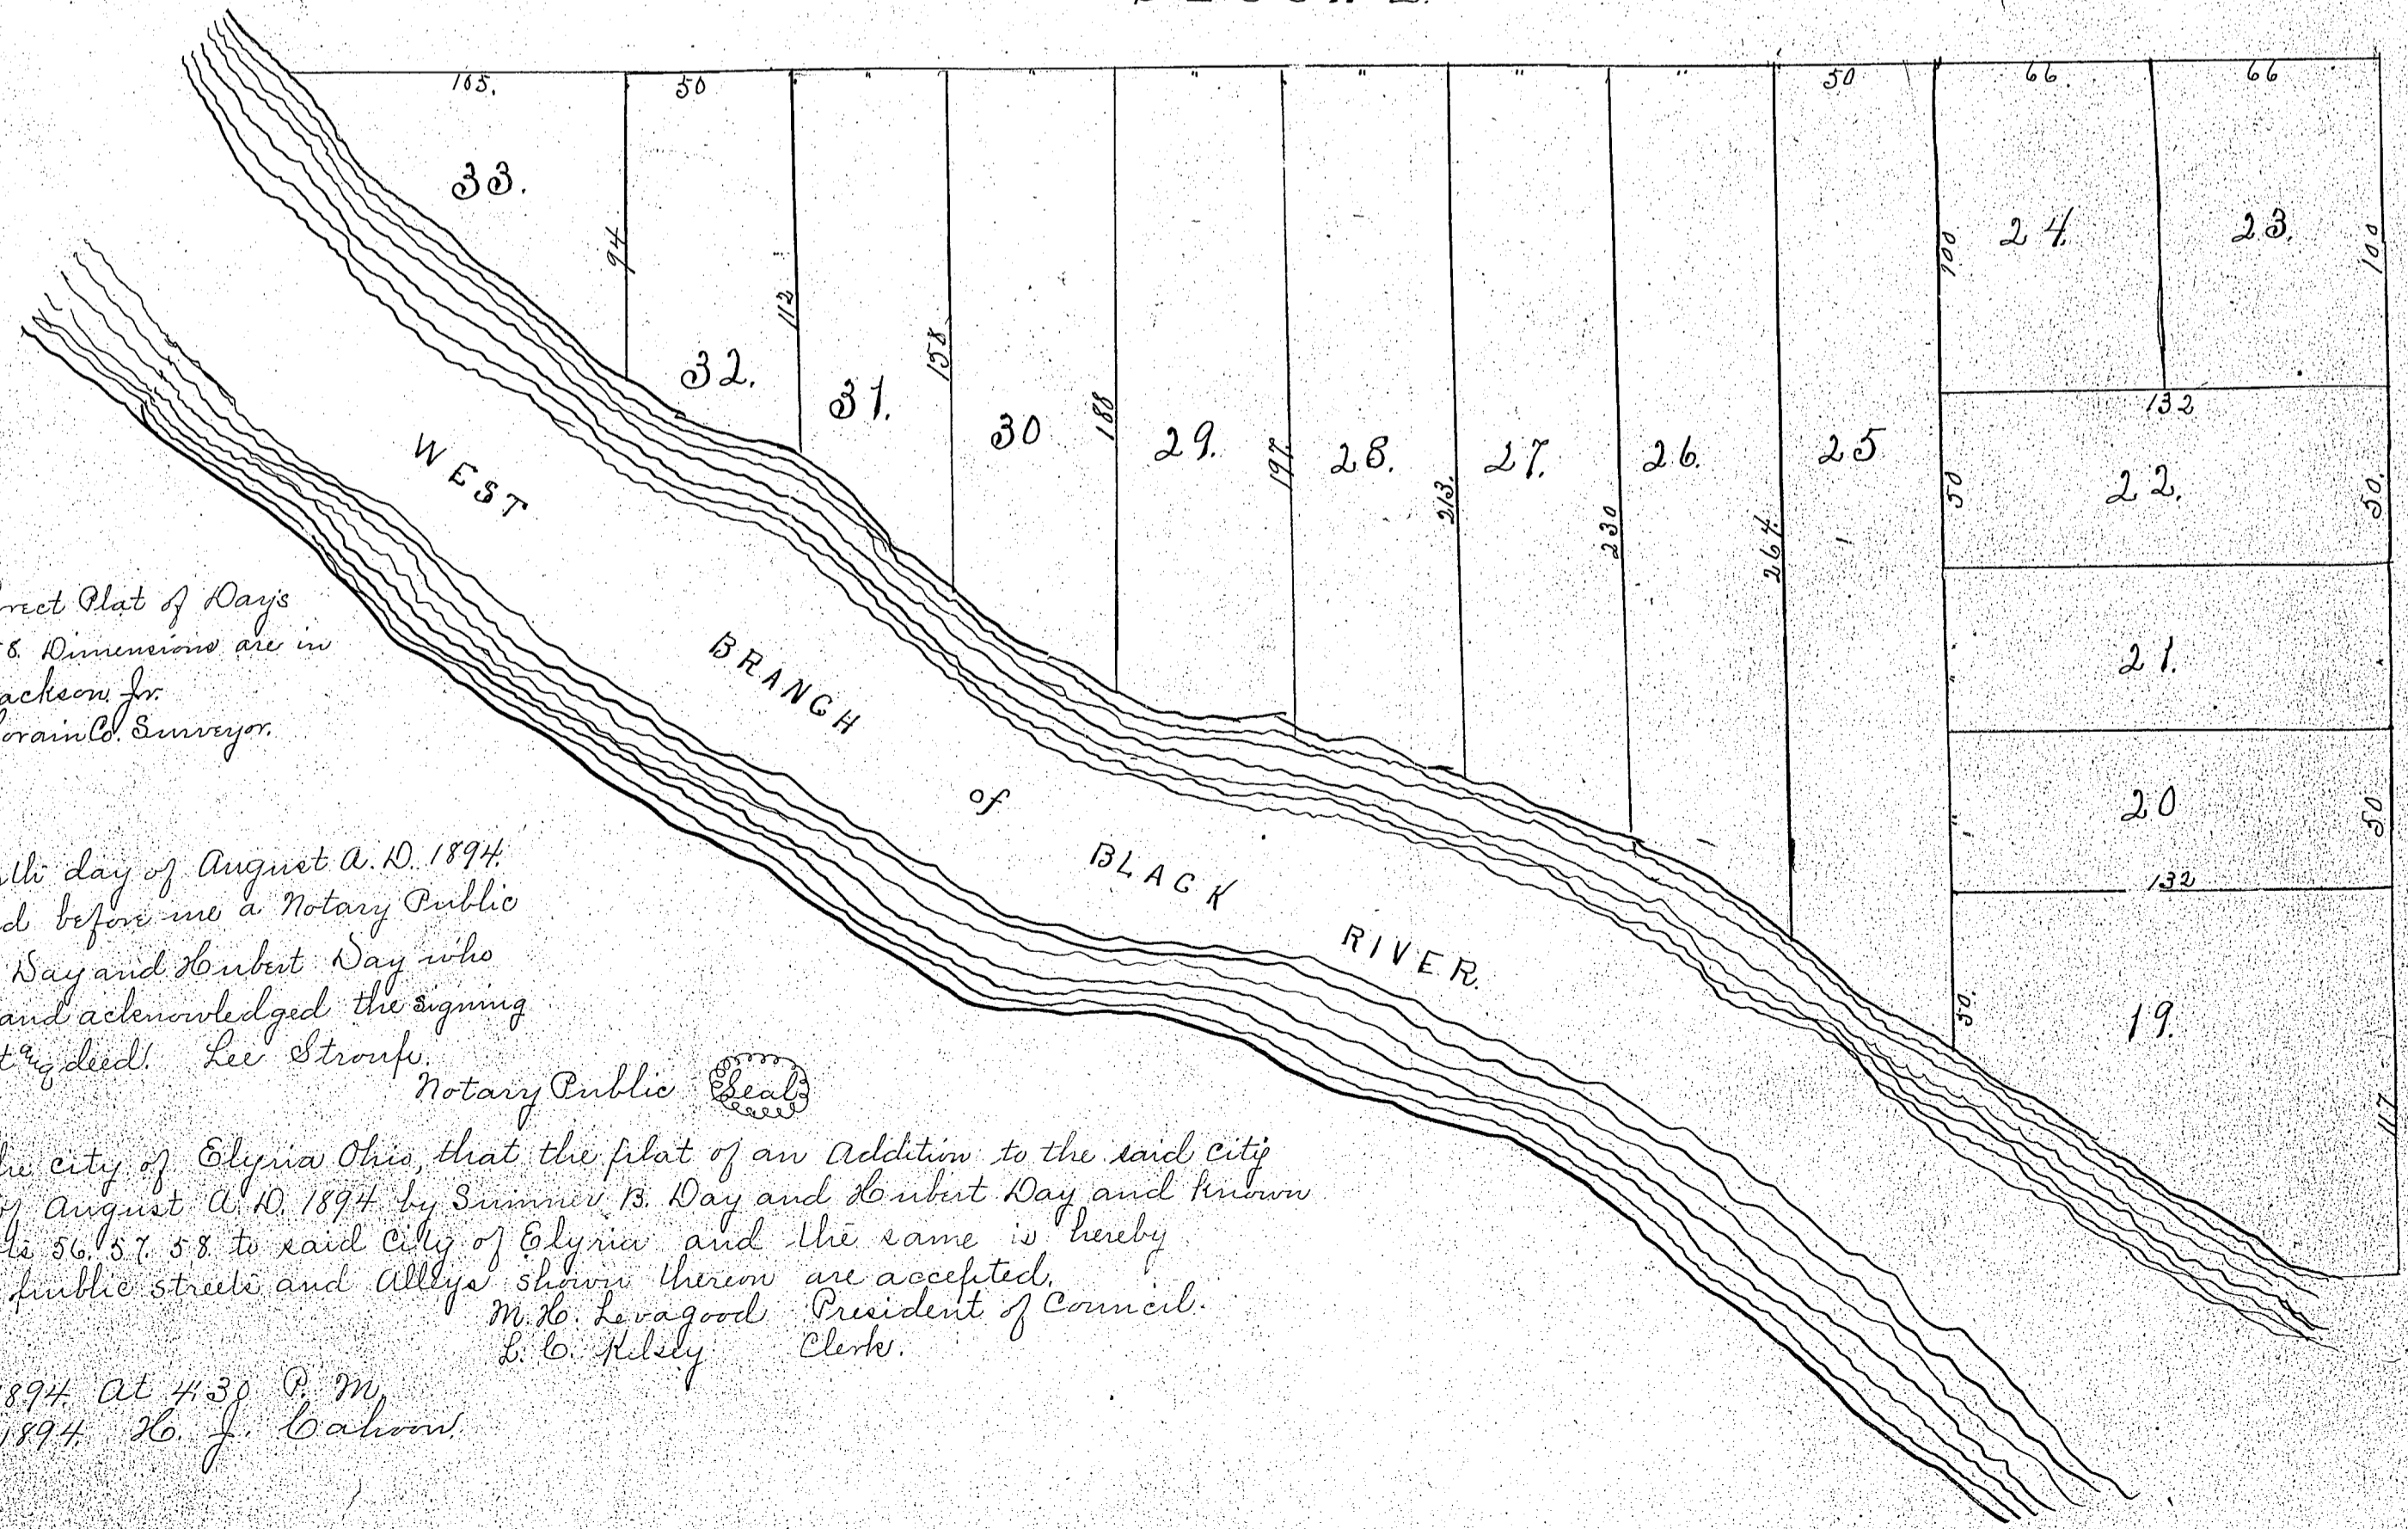 105. 50 " " " " " " 50 66 66
33. 94 32. 112 31. 158 30 188 29. 197. 28. 213. 27. 230 26. 264. 25 100 24. 23. 100
132
50 22. 50.
" 21.
" 20 50
132
50. 19. 117
WEST
BRANCH
of
BLACK
RIVER.
rect Plat of Day's
8. Dimensions are in
ackson. Jr.
orain Co. Surveyor.
th day of August A.D. 1894.
d before me a Notary Public
Day and Hubert Day who
and acknowledged the signing
deed. Lee Stroup.
Notary Public Seal
he city of Elyria Ohio, that the plat of an Addition to the said city
of August A.D. 1894 by Sumner B. Day and Hubert Day and known
56. 57. 58 to said City of Elyria and the same is hereby
public streets and Alleys shown thereon are accepted.
M. H. Levagood President of Council.
L. C. Kelsey Clerk.
894. At 4:30 P. M.
1894 H. J. Cahoon.